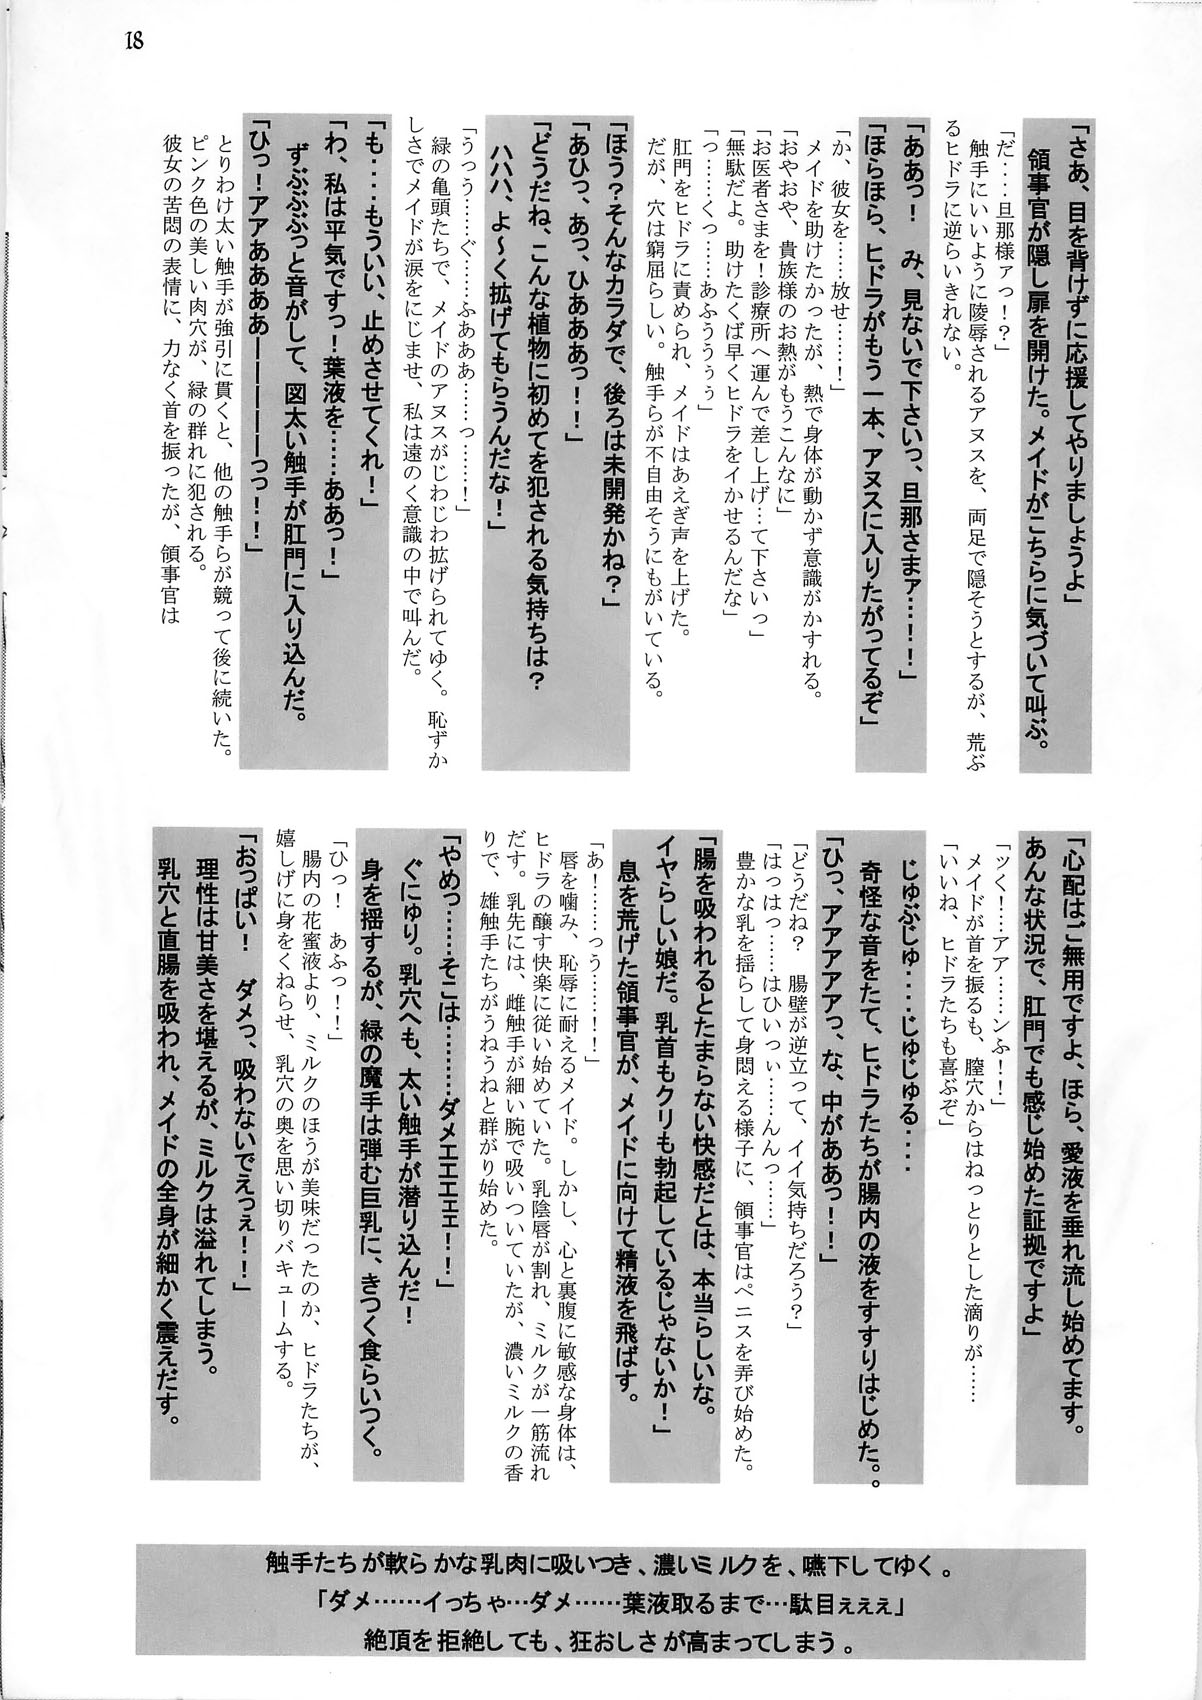 18
「さあ、目を背けずに応援してやりましょうよ」
領事官が隠し扉を開けた。メイドがこちらに気づいて叫ぶ。
「だ‥‥旦那様ァっ！？」
触手にいいように陵辱されるアヌスを、両足で隠そうとするが、荒ぶ
るヒドラに逆らいきれない。
「ああっ！　み、見ないで下さいっ、旦那さまァ…！！」
「ほらほら、ヒドラがもう一本、アヌスに入りたがってるぞ」
「か、彼女を……放せ……！」
メイドを助けたかったが、熱で身体が動かず意識がかすれる。
「おやおや、貴族様のお熱がもうこんなに」
「お医者さまを！診療所へ運んで差し上げ…て下さいっ」
「無駄だよ。助けたくば早くヒドラをイかせるんだな」
「っ……くっ……あふううぅぅ」
肛門をヒドラに責められ、メイドはあえぎ声を上げた。
だが、穴は窮屈らしい。触手らが不自由そうにもがいている。
「ほう？そんなカラダで、後ろは未開発かね？」
「あひっ、あっ、ひああああっ！！」
「どうだね、こんな植物に初めてを犯される気持ちは？
ハハハ、よ〜く拡げてもらうんだな！」
「うっう……ぐ……ふあああ……っ……！」
緑の亀頭たちで、メイドのアヌスがじわじわ拡げられてゆく。恥ずか
しさでメイドが涙をにじませ、私は遠のく意識の中で叫んだ。
「も‥‥もういい、止めさせてくれ！」
「わ、私は平気ですっ！葉液を……ああっ！」
ずぶぶぶっと音がして、図太い触手が肛門に入り込んだ。
「ひっ！アアああああーーーーーっっ！！」
とりわけ太い触手が強引に貫くと、他の触手らが競って後に続いた。
ピンク色の美しい肉穴が、緑の群れに犯される。
彼女の苦悶の表情に、力なく首を振ったが、領事官は
「心配はご無用ですよ、ほら、愛液を垂れ流し始めてます。
あんな状況で、肛門でも感じ始めた証拠ですよ」
「ッく！…アア……ンふ！！」
メイドが首を振るも、膣穴からはねっとりとした滴りが……
「いいね、ヒドラたちも喜ぶぞ」
じゅぶじゅ‥‥じゅじゅる‥‥
奇怪な音をたて、ヒドラたちが腸内の液をすすりはじめた。。
「ひっ、アアアアアっ、な、中がああっ！！」
「どうだね？　腸壁が逆立って、イイ気持ちだろう？」
「はっはっ……はひいっぃ……んんっ……」
豊かな乳を揺らして身悶える様子に、領事官はペニスを弄び始めた。
「腸を吸われるとたまらない快感だとは、本当らしいな。
イヤらしい娘だ。乳首もクリも勃起しているじゃないか！」
息を荒げた領事官が、メイドに向けて精液を飛ばす。
「あ！……っう……！！」
唇を噛み、恥辱に耐えるメイド。しかし、心と裏腹に敏感な身体は、
ヒドラの醸す快楽に従い始めていた。乳陰唇が割れ、ミルクが一筋流れ
だす。乳先には、雌触手が細い腕で吸いついていたが、濃いミルクの香
りで、雄触手たちがうねうねと群がり始めた。
「やめっ‥‥‥そこは‥‥‥‥ダメエエエェ！！」
ぐにゅり。乳穴へも、太い触手が潜り込んだ！
身を揺するが、緑の魔手は弾む巨乳に、きつく食らいつく。
「ひっ！　あふっ！！」
腸内の花蜜液より、ミルクのほうが美味だったのか、ヒドラたちが、
嬉しげに身をくねらせ、乳穴の奥を思い切りバキュームする。
「おっぱい！　ダメっ、吸わないでえっぇ！！」
理性は甘美さを堪えるが、ミルクは溢れてしまう。
乳穴と直腸を吸われ、メイドの全身が細かく震えだす。
触手たちが軟らかな乳肉に吸いつき、濃いミルクを、嚥下してゆく。
「ダメ……イっちゃ…ダメ……葉液取るまで…駄目ぇぇぇ」
絶頂を拒絶しても、狂おしさが高まってしまう。